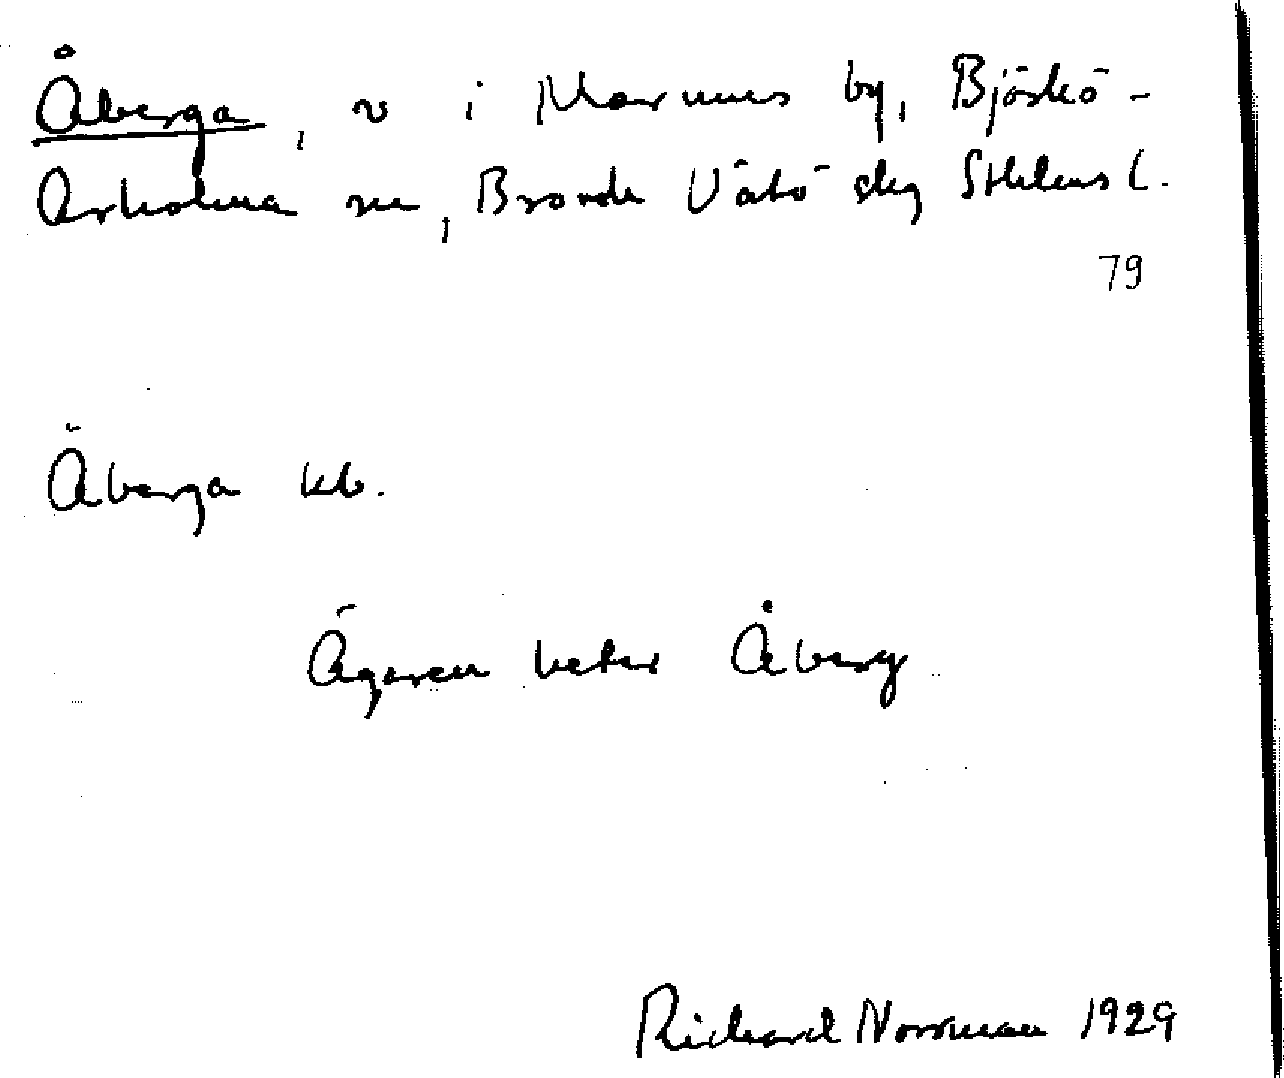 Åberga, v i Marums by, Björkö-
Arholma sn, Brovde Vätö slg Sthlms l.
79
Åberga kb.
Ägaren heter Åberg
Richard Norrman 1929